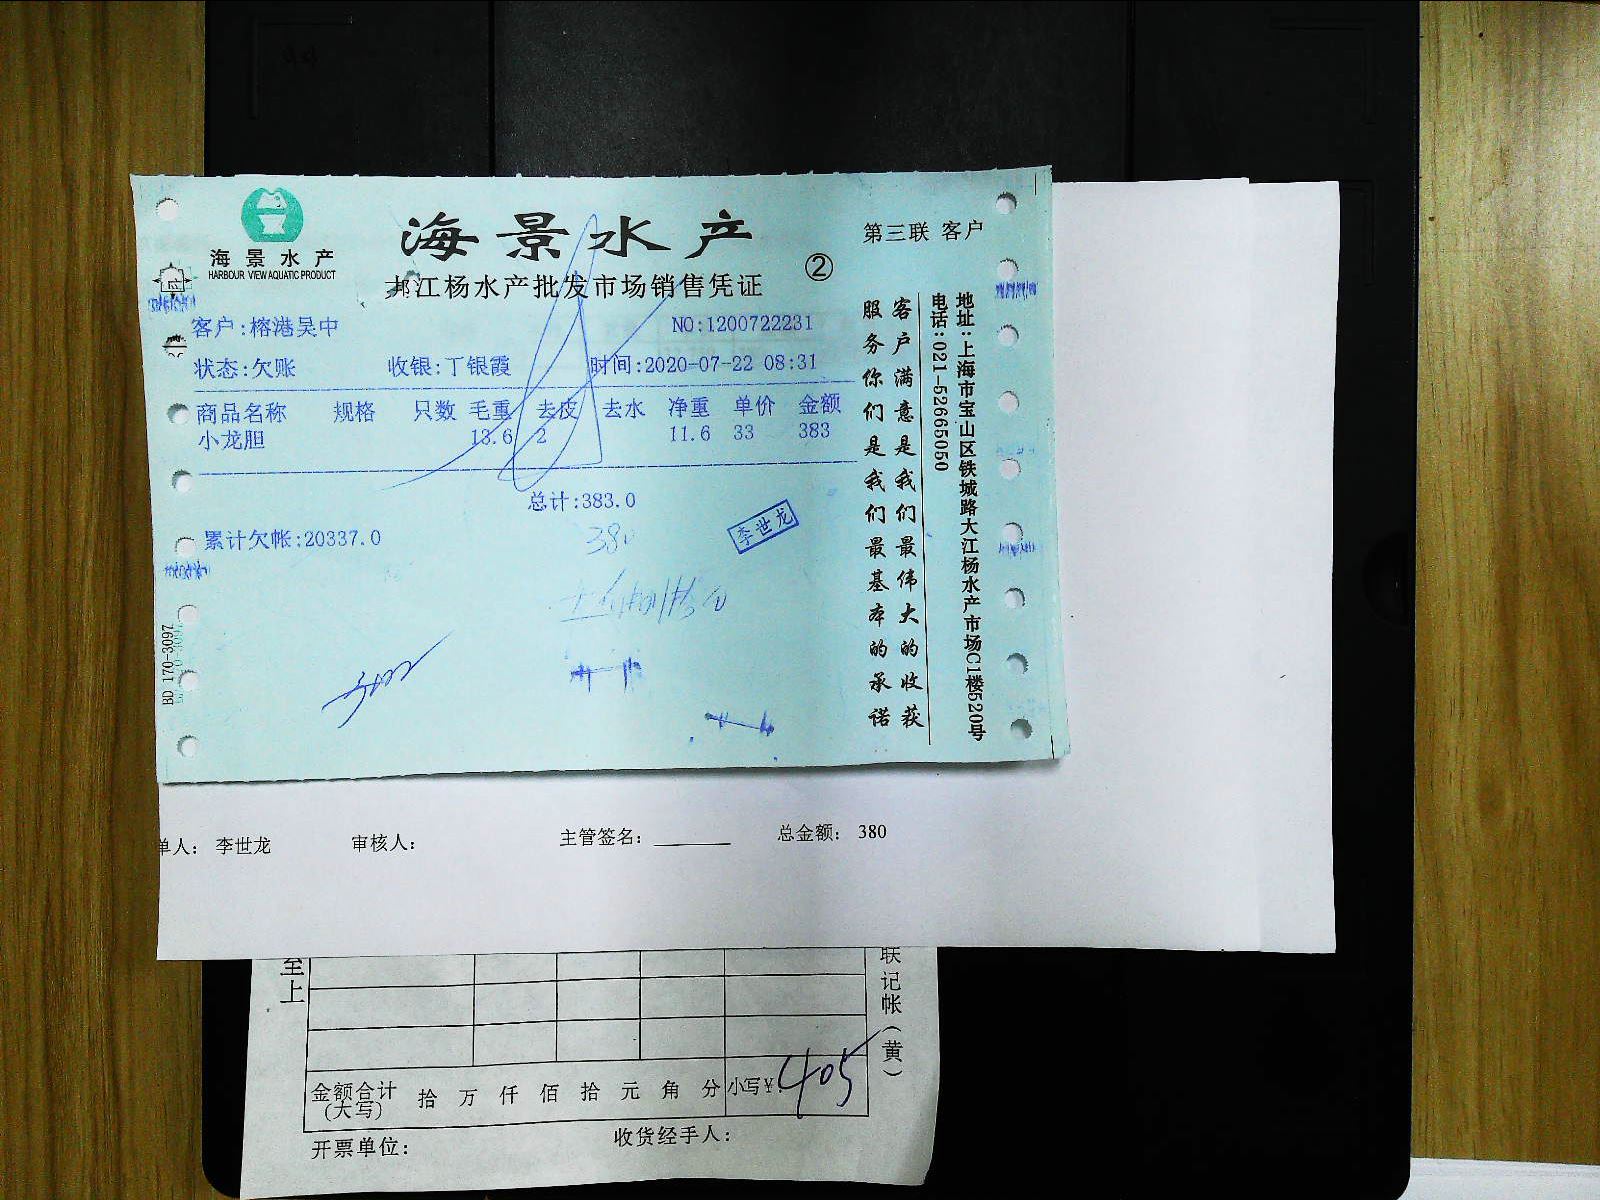 海景水产
HARBOUR VIEW AQUATIC PRODUCT
海景水产
江杨水产批发市场销售凭证
②
第三联 客户
客户:榕港吴中
NO:1200722231
状态:欠账 收银:丁银霞 时间:2020-07-22 08:31
商品名称 规格 只数 毛重 去皮 去水 净重 单价 金额
小龙胆 13.6 2 11.6 33 383
总计:383.0
累计欠帐:20337.0
380
李世龙
客户满意是我们最伟大的收获
服务你们是我们最基本的承诺
地址:上海市宝山区铁城路大江杨水产市场C1楼520号
电话:021-52665050
BD 170-3097
单人: 李世龙 审核人: 主管签名: 总金额: 380
至上
联记帐(黄)
金额合计 拾 万 仟 佰 拾 元 角 分 小写¥: 405
(大写)
开票单位: 收货经手人: